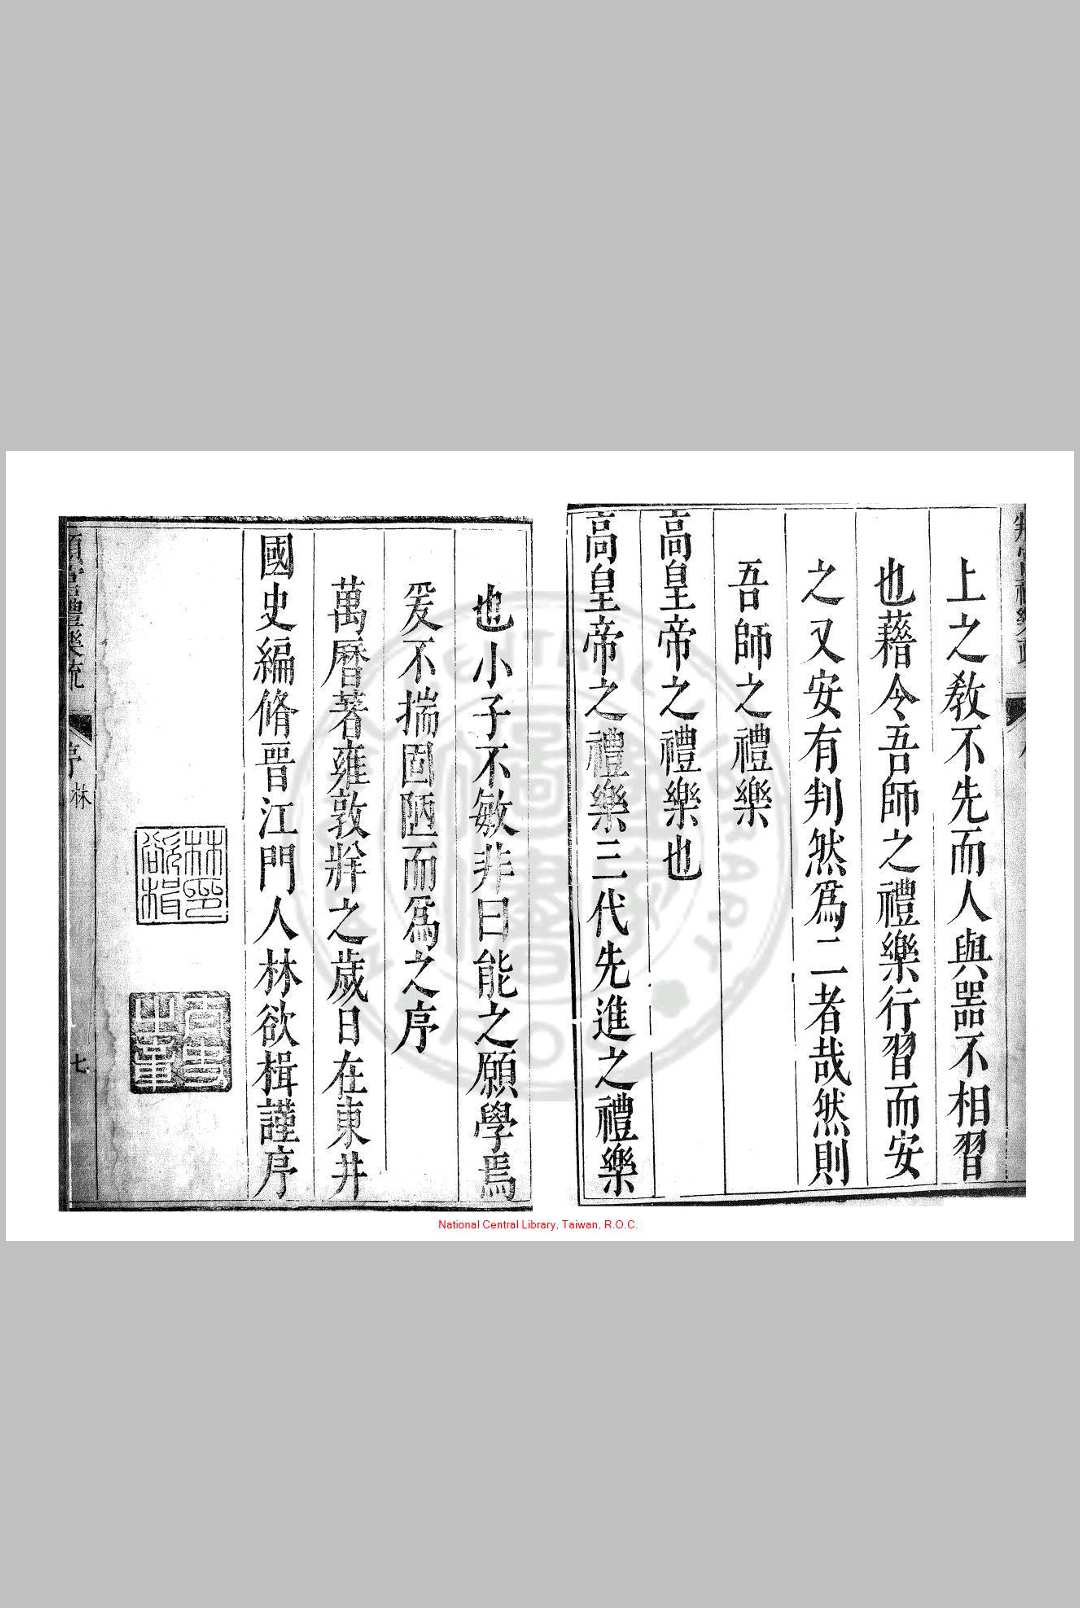 上之敎不先而人與噐不相習
也藉令吾師之禮樂行習而安
之又安有判然爲二者哉然則
吾師之禮樂
高皇帝之禮樂也
高皇帝之禮樂三代先進之禮樂
也小子不敏非曰能之願學焉
爰不揣固陋而爲之序
萬曆著雍敦牂之歲日在東井
國史編脩晉江門人林欲楫謹序
林印欲楫
頖宮禮樂疏
序
林
七
National Central Library, Taiwan, R.O.C.